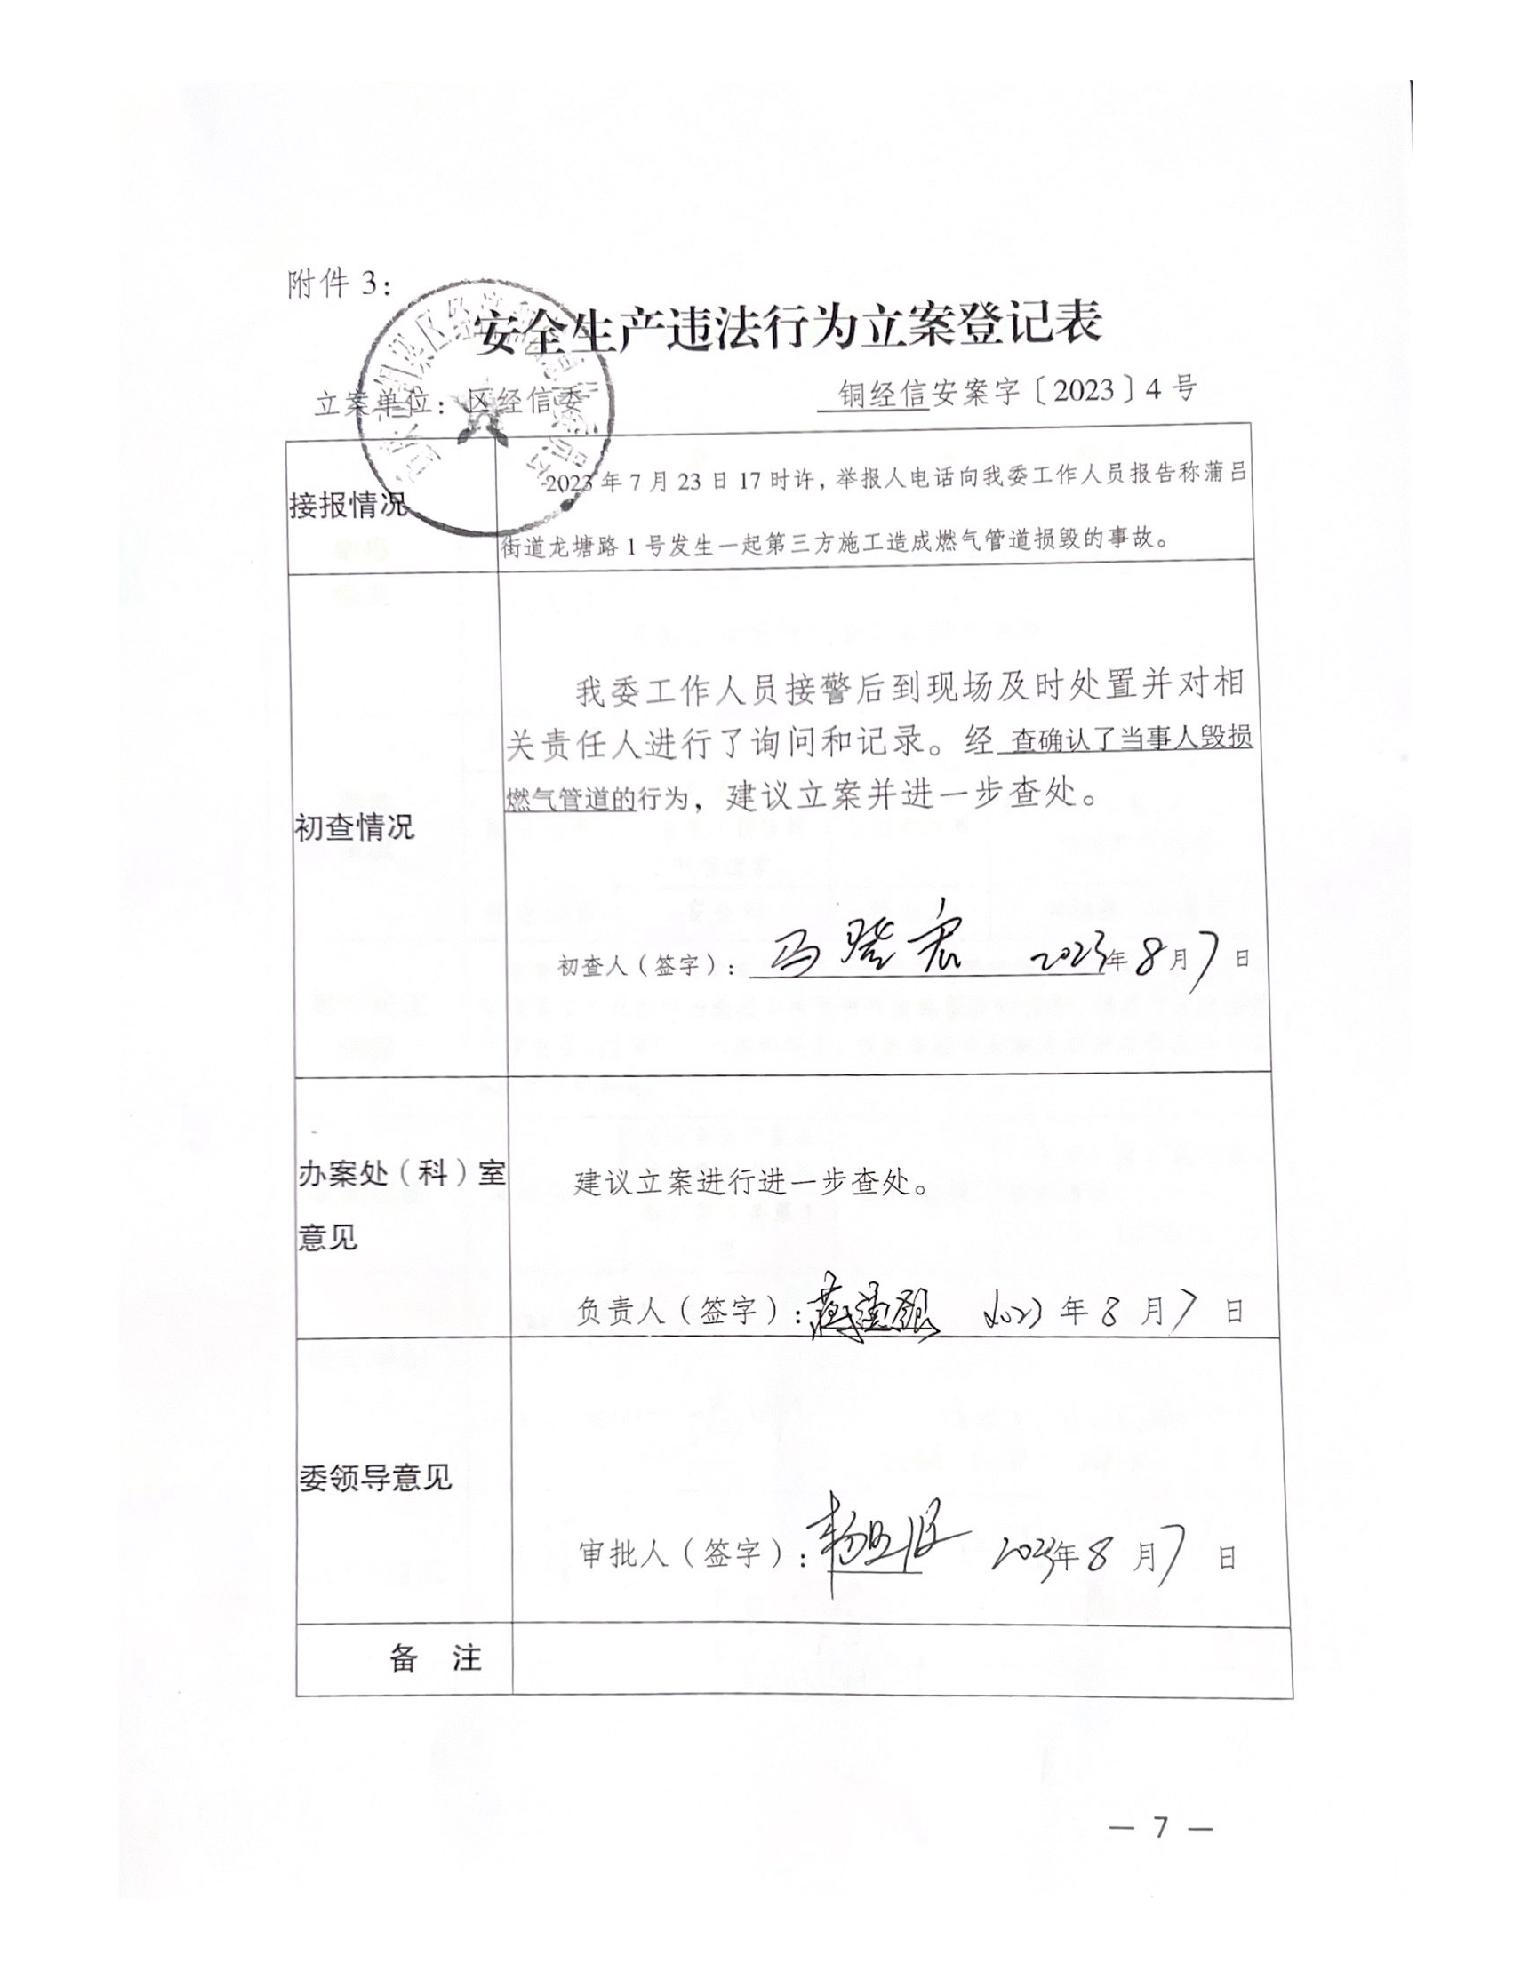 附件 3：
安全生产违法行为立案登记表
立案单位：区经信委
铜经信安案字〔2023〕4 号
接报情况
2023 年 7 月 23 日 17 时许，举报人电话向我委工作人员报告称蒲吕
街道龙塘路 1 号发生一起第三方施工造成燃气管道损毁的事故。
初查情况
我委工作人员接警后到现场及时处置并对相
关责任人进行了询问和记录。经 查确认了当事人毁损
燃气管道的行为，建议立案并进一步查处。
初查人（签字）：马登宏 2023年 8 月 7 日
办案处（科）室
意见
建议立案进行进一步查处。
负责人（签字）: 2023 年 8 月 7 日
委领导意见
审批人（签字）: 2023年 8 月 7 日
备 注
— 7 —